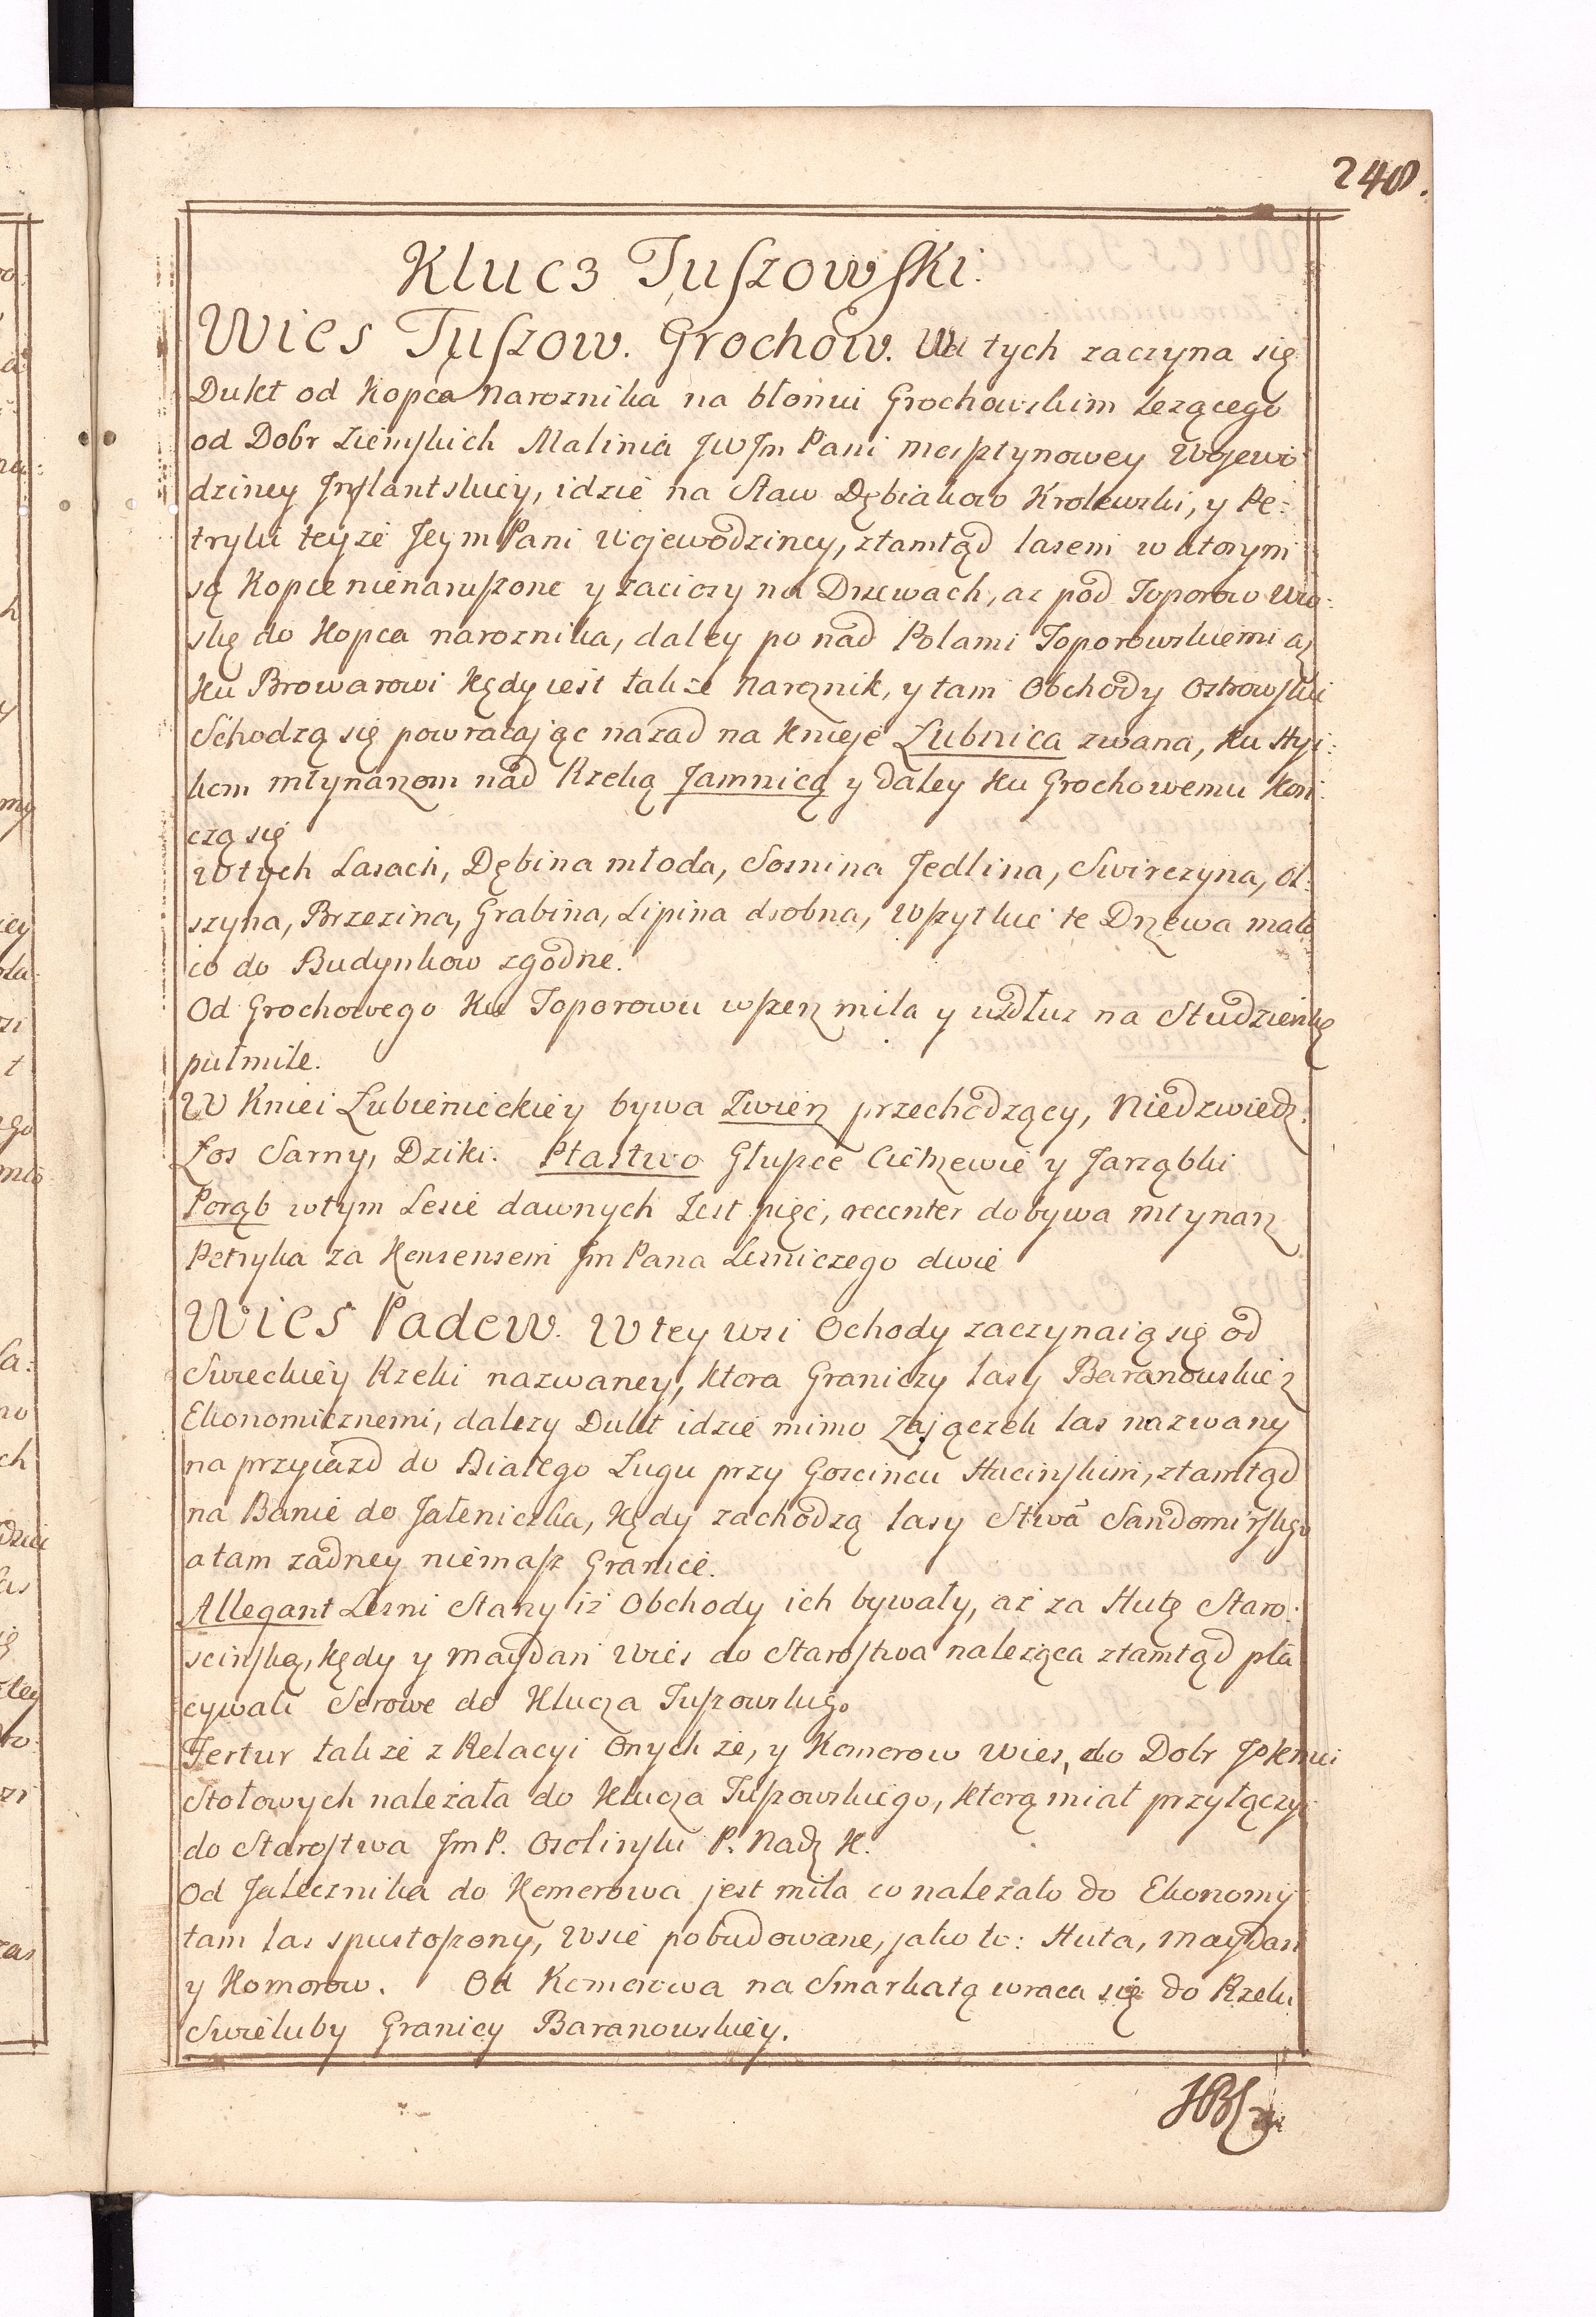 248.
Klucz Tuszowski.
Wies Tuszow. Grochow. Od tych zaczyna się
Dukt od Kopca Naroznika na błoniu Grochowskim lezącego
od Dobr Ziemskich Malinia JWJm Pani Wojewo
dziney Inflantskiey, idzie na Staw Dębiakow Krolewski, y Pe:
tryki teyze Jeym Pani Wojewodziney, ztamtąd lasem w ktorym
są Kopce nienaruszone y zaciosy na Drzewach, az pod Toporow Wio:
skę do Kopca naroznika, daley po nad Polami Toporowskiemi asz
ku Browarowi kędy iest takze Naroznik, y tam Obchody Ostrowski
Schodzą się powracając nazad na knieje Łubnica zwana, ku
młynarzom nad Rzeką Jamnicą y daley ku Grochowemu kon:
czą się
W tych Lasach, Dębina młoda, Sosnina Jedlina, Swirczyna, Ol:
szyna, Brzezina, Grabina, Lipina drobna, Wszytkie te Drzewa mało
co do Budynkow zgodne.
Od Grochowego ku Toporowu wszerz mila y wzdłuz na Studzienkę
pułmile.
W Kniei Łubienickiey bywa Zwierz przechodzący, Niedzwiedz.
Łos Sarny, Dziki. Ptastwo Głuszce Cietrzewie y Jarząbki
Porąb wtym Lesie dawnych Iest pięc, recenter dobywa młynarz
Petryka za Konsensem Jm Pana Lesniczego dwie
Wies Padew. W tey wsi Ochody zaczynaią się od
Swieckiey Rzeki nazwaney, ktora Graniczy lasy Baranowskie z
Ekonomicznemi, dalszy Dukt idzie mimo Zajączek las nazwany
na przyiazd do Białego Ługu przy Goscincu Hucinskim, ztamtąd
na Banie do Jałeniczka, kędy zachodzą lasy Stwa Sandomirskgo
a tam zadney niemasz Granice.
Allegant Lesni Starzy iż Obchody ich bywały, aż za Hutę Staro:
scinską, kędy y Maydan Wies do Starostwa naleząca ztamtąd pła
cywali Serowe do Klucza Tuszowskigo
Fertur takze z Relacyi Onych ze, y Komorow Wies, do Dobr JoKmci
Stołowych nalezała do Klucza Tuszowskiego, ktorą miał przyłączyc
do Starostwa JmP. Osolinski P. Nadz K.
Od Jałecznika do Komorowa jest mila co nalezało do Ekonomy
tam las spustoszony, Wsie pobudowane, jako to: Huta, Maydan
y Komorow. Od Komorowa na Smarkatą wraca się do Rzeki
Granicy Baranowskiey.